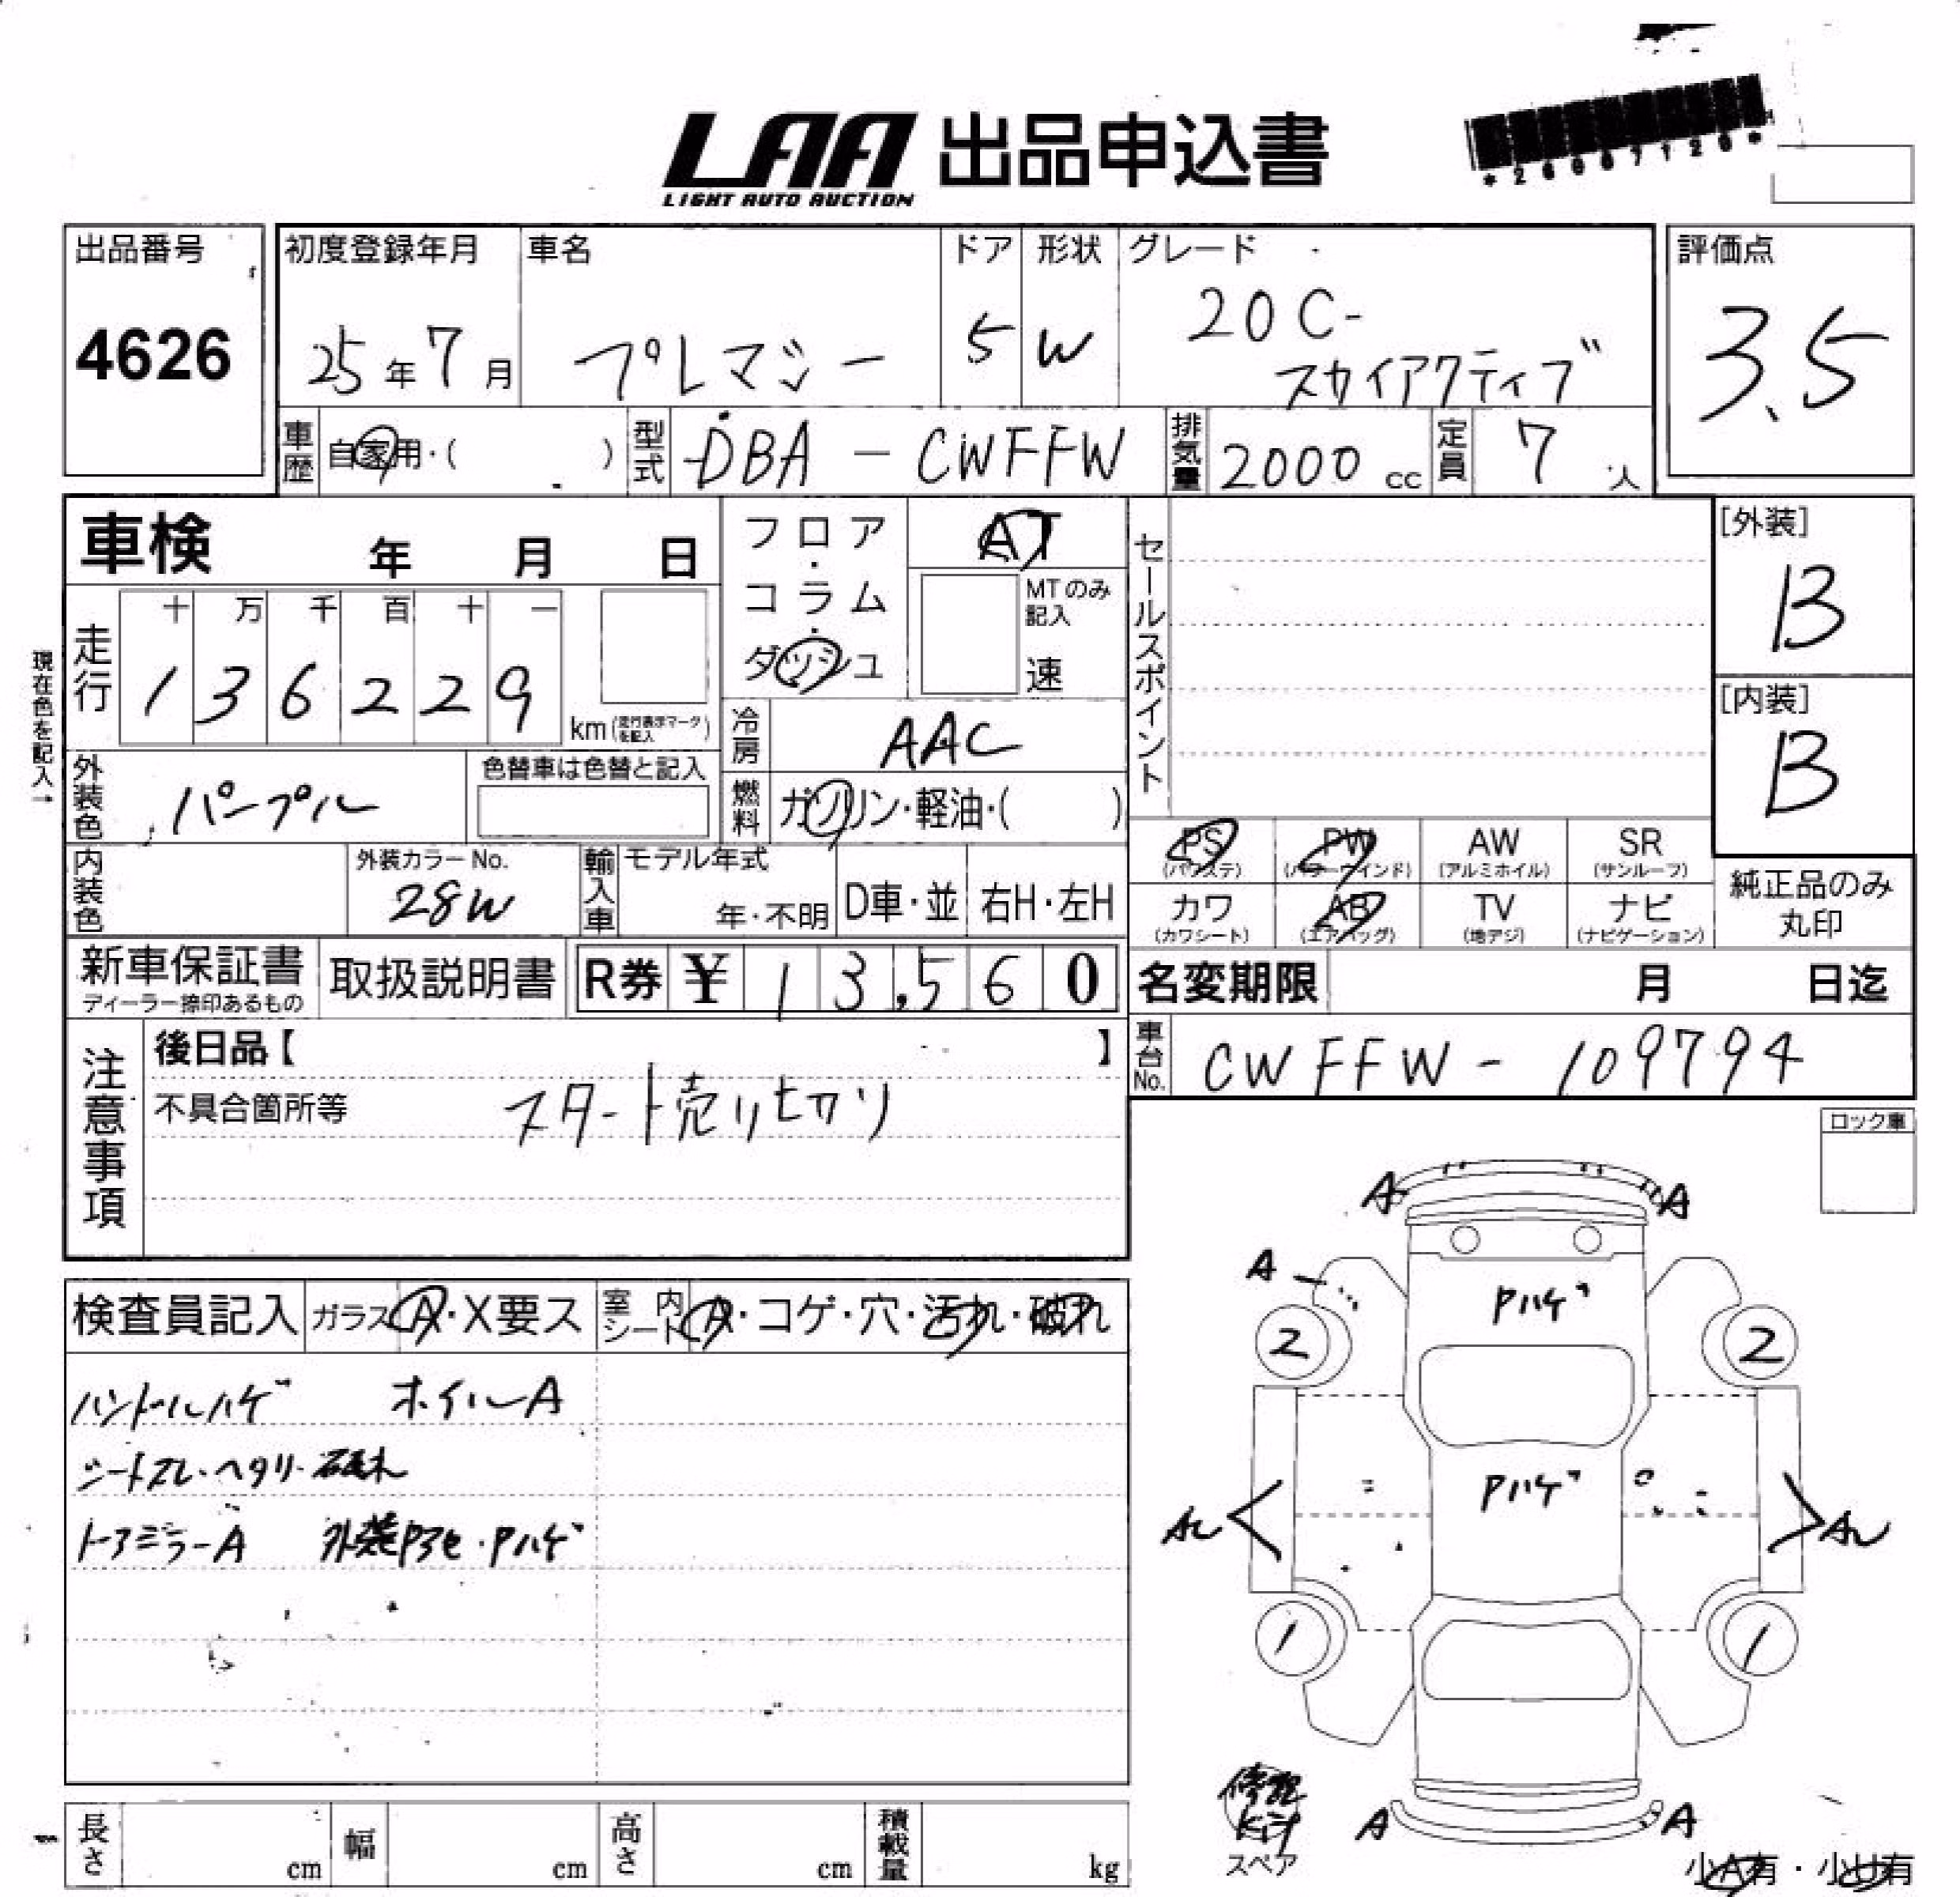 LAA 出品申込書
LIGHT AUTO AUCTION
*26007120*
出品番号
4626
初度登録年月
25年7月
車名
プレマシー
ドア
5
形状
W
グレード
20C-
スカイアクティブ
評価点
3.5
車歴
自家用・( )
型式
DBA-CWFFW
排気量
2000cc
定員
7人
車検 年 月 日
フロア・コラム・ダッシュ
AT
MTのみ記入
速
セールスポイント
[外装]
B
[内装]
B
現在色を記入→
走行
十 万 千 百 十 一
1 3 6 2 2 9
km (走行表示マークを記入)
冷房
AAC
燃料
ガソリン・軽油・( )
外装色
パープル
色替車は色替と記入
内装色
外装カラーNo.
28W
輸入車
モデル年式
年・不明
D車・並
右H・左H
PS (パワステ)
PW (パワーウインド)
AW (アルミホイル)
SR (サンルーフ)
カワ (カワシート)
AB (エアバッグ)
TV (地デジ)
ナビ (ナビゲーション)
純正品のみ
丸印
新車保証書
ディーラー捺印あるもの
取扱説明書
R券 ¥ 13,560
名変期限 月 日迄
車台No.
CWFFW-109794
注意事項
後日品【 】
不具合箇所等
スタート売り切り
ロック車
検査員記入
ガラス A・X要ス
室内シート A・コゲ・穴・汚れ・破れ
ハンドルハゲ ホイルA
シートスレ・ヘタリ・破れ
ドアミラーA 外装Pアセ・Pハゲ
A A
A
Pハゲ
2 2
Pハゲ
1 1
A A
修理
Kit
スペア
小A有・小U有
長さ cm
幅 cm
高さ cm
積載量 kg